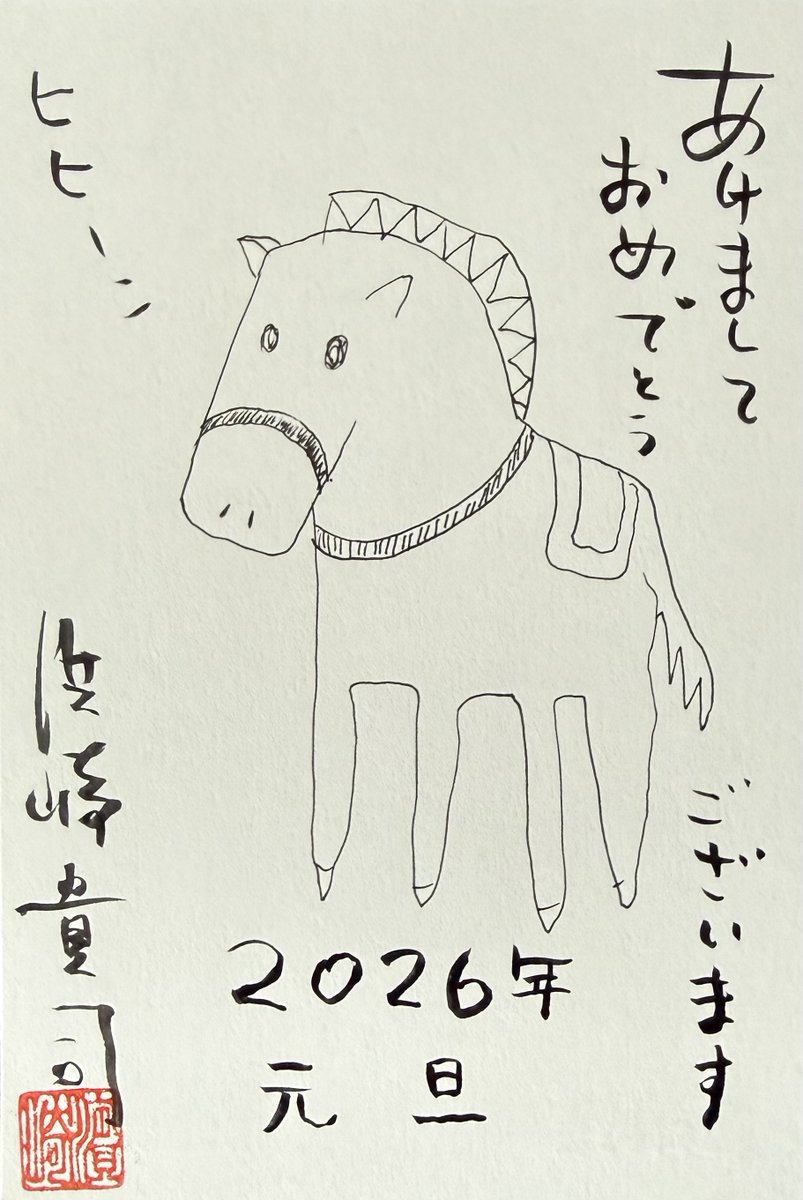 あけまして
おめでとう
ございます
ヒヒーン
2026年
元旦
浜崎貴司